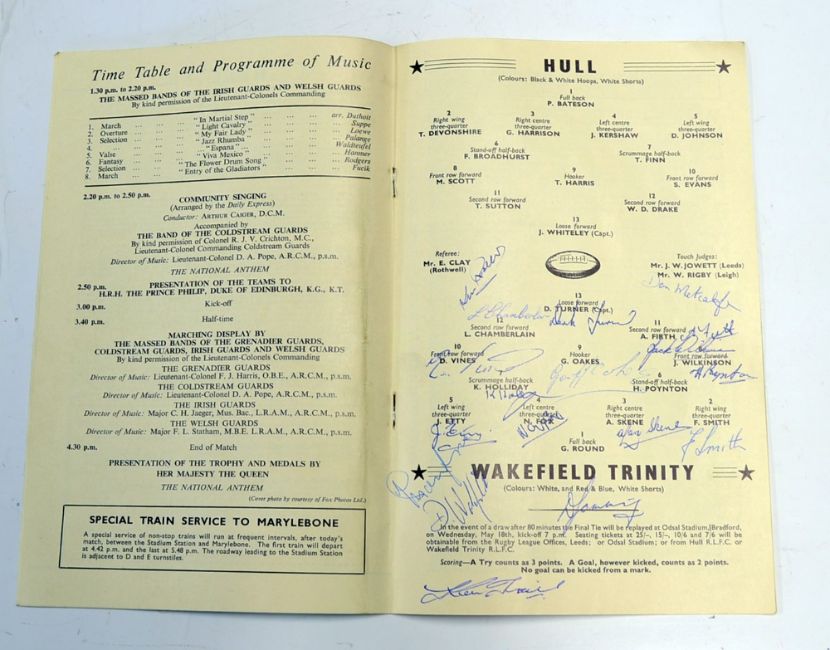 Time Table and Programme of Music
1.30 p.m. to 2.20 p.m.
THE MASSED BANDS OF THE IRISH GUARDS AND WELSH GUARDS
By kind permission of the Lieutenant-Colonels Commanding
1. March ... ... ... "In Martial Step" ... ... ... arr. Duthoit
2. Overture ... ... ... "Light Cavalry" ... ... ... Suppe
3. Selection ... ... ... "My Fair Lady" ... ... ... Loewe
4. ... ... ... "Jazz Rhumba" ... ... ... Palangy
5. Valse ... ... ... "Espana" ... ... ... ... Waldteufel
6. Fantasy ... ... ... "Viva Mexico" ... ... ... Hanmer
7. Selection ... ... "The Flower Drum Song" ... ... Rodgers
8. March ... ... "Entry of the Gladiators" ... ... Fucik
2.20 p.m. to 2.50 p.m.
COMMUNITY SINGING
(Arranged by the Daily Express)
Conductor: ARTHUR CAIGER, D.C.M.
Accompanied by
THE BAND OF THE COLDSTREAM GUARDS
By kind permission of Colonel R. J. V. Crichton, M.C.,
Lieutenant-Colonel Commanding Coldstream Guards
Director of Music: Lieutenant-Colonel D. A. Pope, A.R.C.M., p.s.m.
THE NATIONAL ANTHEM
2.50 p.m. PRESENTATION OF THE TEAMS TO
H.R.H. THE PRINCE PHILIP, DUKE OF EDINBURGH, K.G., K.T.
3.00 p.m. Kick-off
3.40 p.m. Half-time
MARCHING DISPLAY BY
THE MASSED BANDS OF THE GRENADIER GUARDS,
COLDSTREAM GUARDS, IRISH GUARDS AND WELSH GUARDS
By kind permission of the Lieutenant-Colonels Commanding
THE GRENADIER GUARDS
Director of Music: Lieutenant-Colonel F. J. Harris, O.B.E., A.R.C.M., p.s.m.
THE COLDSTREAM GUARDS
Director of Music: Lieutenant-Colonel D. A. Pope, A.R.C.M., p.s.m.
THE IRISH GUARDS
Director of Music: Major C. H. Jaeger, Mus. Bac., L.R.A.M., A.R.C.M., p.s.m.
THE WELSH GUARDS
Director of Music: Major F. L. Statham, M.B.E. L.R.A.M., A.R.C.M., p.s.m.
4.30 p.m. End of Match
PRESENTATION OF THE TROPHY AND MEDALS BY
HER MAJESTY THE QUEEN
THE NATIONAL ANTHEM
(Cover photo by courtesy of Fox Photos Ltd.)
SPECIAL TRAIN SERVICE TO MARYLEBONE
A special service of non-stop trains will run at frequent intervals, after today's
match, between the Stadium Station and Marylebone. The first train will depart
at 4.42 p.m. and the last at 5.48 p.m. The roadway leading to the Stadium Station
is adjacent to D and E turnstiles.
HULL
(Colours: Black & White Hoops, White Shorts)
1
Full back
P. BATESON
2 3 4 5
Right wing three-quarter Right centre three-quarter Left centre three-quarter Left wing three-quarter
T. DEVONSHIRE G. HARRISON J. KERSHAW D. JOHNSON
6 7
Stand-off half-back Scrummage half-back
F. BROADHURST T. FINN
8 9 10
Front row forward Hooker Front row forward
M. SCOTT T. HARRIS S. EVANS
11 12
Second row forward Second row forward
T. SUTTON W. D. DRAKE
13
Loose forward
J. WHITELEY (Capt.)
Referee: Touch Judges:
Mr. E. CLAY Mr. J. W. JOWETT (Leeds)
(Rothwell) Mr. W. RIGBY (Leigh)
Don Metcalfe
13
Loose forward
D. TURNER (Capt.)
L Chamberlain Derek Turner
12 11
Second row forward Second row forward
L. CHAMBERLAIN A. FIRTH
A Firth
Jack Wilkinson
10 9 8
Front row forward Hooker Front row forward
D. VINES G. OAKES J. WILKINSON
Geoff Oakes H Poynton
7 6
Scrummage half-back Stand-off half-back
K. HOLLIDAY H. POYNTON
K Holliday
5 4 3 2
Left wing three-quarter Left centre three-quarter Right centre three-quarter Right wing three-quarter
J. ETTY N. FOX A. SKENE F. SMITH
N Fox Alan Skene F Smith
1
Full back
G. ROUND
WAKEFIELD TRINITY
(Colours: White, and Red & Blue, White Shorts)
In the event of a draw after 80 minutes the Final Tie will be replayed at Odsal Stadium, Bradford,
on Wednesday, May 18th, kick-off 7 p.m. Seating tickets at 25/-, 15/-, 10/6 and 7/6 will be
obtainable from the Rugby League Offices, Leeds; or Odsal Stadium; or from Hull R.L.F.C. or
Wakefield Trinity R.L.F.C.
Scoring—A Try counts as 3 points. A Goal, however kicked, counts as 2 points.
No goal can be kicked from a mark.